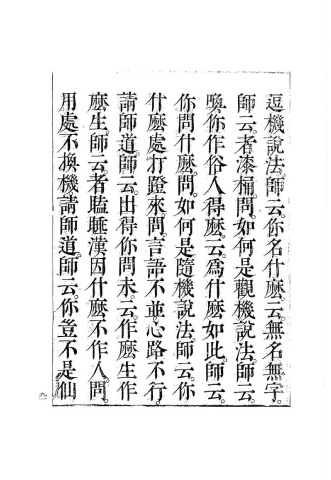 逗機說法師云。你名什麼。云。無名無字。
師云。者漆桶。問。如何是觀機說法。師云。
喚你作俗人得麼。云。爲什麼如此。師云。
你問什麼。問。如何是隨機說法。師云。你
什麼處打蹬來。問。言語不並。心路不行。
請師道。師云。出得你問未。云。作麼生作
麼生。師云。者瞌睡漢因什麼不作人。問。
用處不換機請師道。師云。你豈不是仙
九一